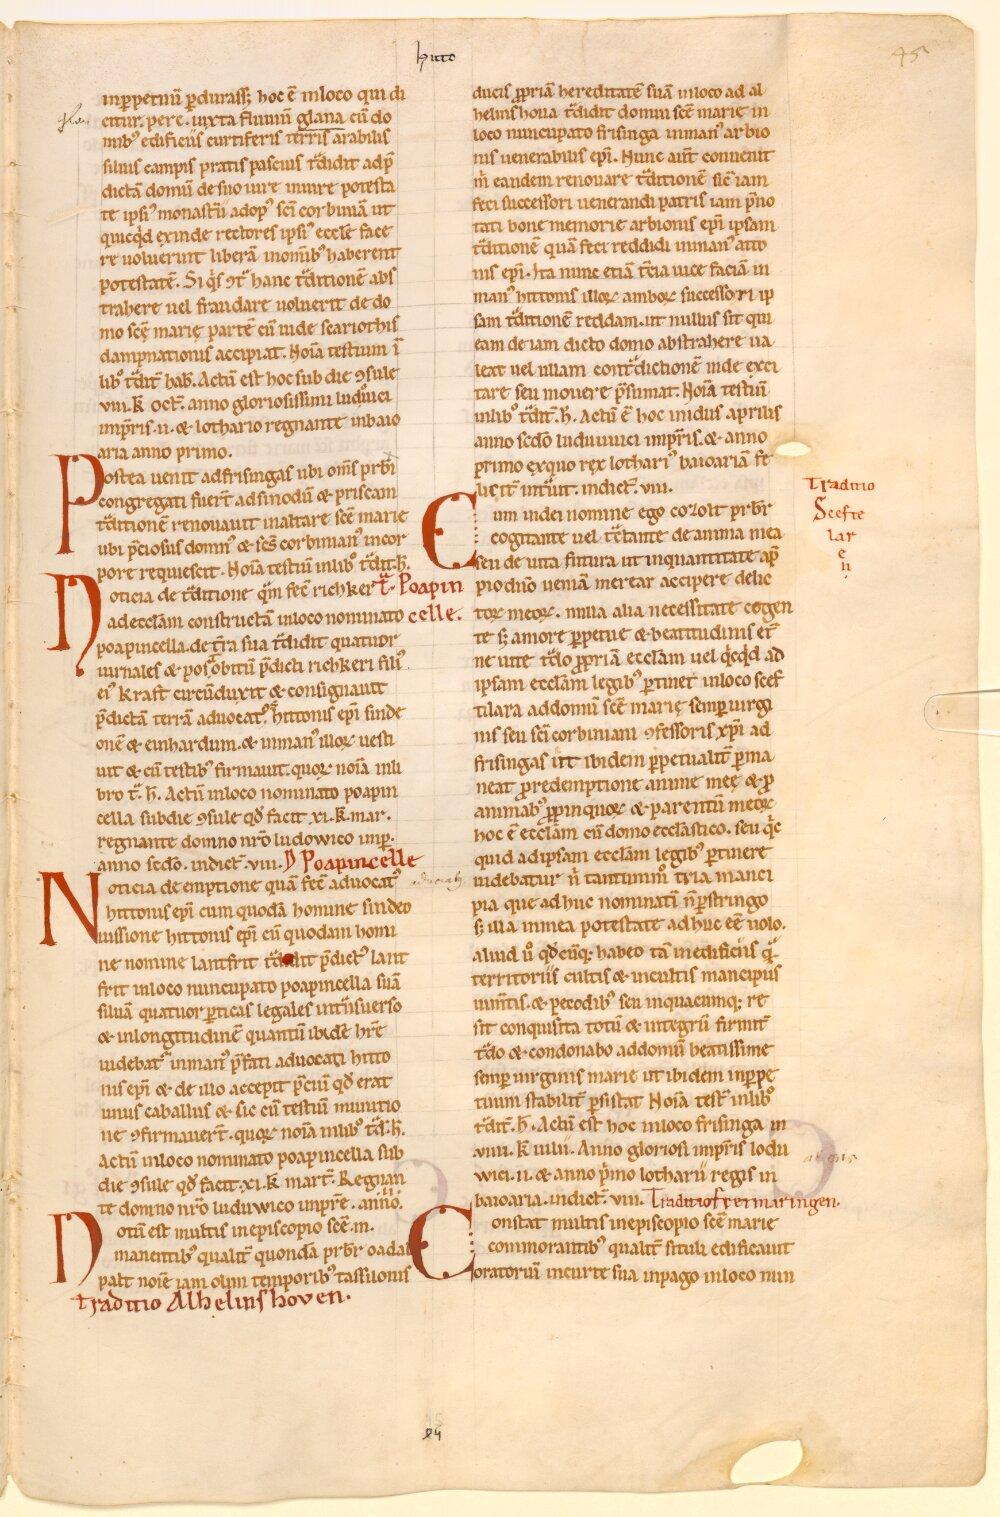 hitto
45
inp̄petuū p̄durass; hoc ē inloco qui di
citur. pere. iuxta fluuiū glana cū do
mibꝰ edificiis curtiferis terris arabilis
siluis campis pratis pascuis t̄didit adp̄
dictā domū de suo iure iniure potesta
te ipsiꝰ monast̄ii adopꝰ sc̄i corbinia̅ ut
quicq̇d exinde rectores ipsiꝰ eccl̄e face
re uoluerint liberā inomībꝰ haberent
potestatē. Si q̇s ꝯt̄ hanc t̄ditionē abs
trahere uel fraudare uoluerit de do
mo scę̄ marię partē cū iuda scariothis
dampnationis accipiat. Noı̄a testium ī
libꝰ t̄dit̄ hab̄. Actū est hoc sub die ꝯsule
viii. k̄ oct̄. anno gloriosissimi luduuici
imp̄ris. ii. & lothario regnante inbaio
aria anno primo.
Postea uenit adfrisingas ubi om̄s prb̄i
congregati fuer̄t adsinodū & priscam
t̄ditionē renouauit inaltare scē̄ marie
ubi p̄ciosus domnꝰ & sc̄s corbinianꝰ incor
pore requiescit. Noı̄a testiū inlibꝰ t̄dit̄.h̄.
Noticia de t̄ditione q̄m fec̄ richker t̄. Poapin
adeccl̄am constructā inloco nominato celle.
poapincella. de t̄ra sua t̄didit quatuor
iurnales & post obitū p̄dicti richkeri filiꝰ
eiꝰ kraft circūduxit & consignauit
p̄dictā terrā aduocatꝰ hittonis epī sinde
onē & einhardum. & inmanꝰ illoꝝ uesti
uit & cū testibꝰ firmauit. quoꝝ noı̄a inli
bro t̄. h̄. Actū inloco nominato poapin
cella subdie ꝯsule qđ facit. xi. k̄. mar.
regnante domno nr̄o ludowico imp̄.
anno scd̄o. indict̄. viii. Ꝺ Poapincelle
Noticia de emptione quā fec̄ aduocatꝰ
hittonis epī cum quodā homine sindeo
iussione hittonis epī cū quodam homi
ne nomine lantfrit t̄didit p̄dictꝰ lant
frit inloco nuncupato poapincella suā
siluā quatuor p̄ticas legales intn̄suerso
& inlongitudinē quantū ibidē hr̄e
uidebat̄ inmanꝰ p̄fati aduocati hitto
nis epī & de illo accepit p̄ciū qđ erat
unus caballus & sic cū testiū munitio
ne ꝯfirmauer̄t. quoꝝ noı̄a inlibꝰ t̄d. h̄.
Actū inloco nominato poapincella sub
die ꝯsule qđ facit. xi. k̄ mart̄. Regnan
te domno nr̄o luduwico imp̄re. anno. iii.
Notū est multis inepiscopio scē̄. m.
manentibꝰ qualit̄ quondā prb̄r oadal
palt noı̄e iam olim temporibꝰ tassilonis
Traditio Alhelinshoven.
ducis p̱priā hereditatē suā inloco ad al
helinshoua t̄didit domui scē̄ marię in
loco nuncupato frisinga inmanꝰ arbio
nis uenerabilis epī. Nunc aut̄ conuenit
m̄ eandem renouare t̄ditionē sic̄ iam
feci successori uenerandi patris iam p̄no
tati bone memorie arbionis epī ipsam
t̄ditionē quā feci reddidi inmanꝰ atto
nis epī. Ita nunc etiā t̄cia uice faciā in
manꝰ hittonis illoꝝ amboꝝ successori ip
sam t̄ditionē reddam. ut nullus sit qui
eam de iam dicto domo abstrahere ua
leat uel ullam contr̄dictionē inde exci
tare seu mouere p̄sumat. Noı̄a testiū
inlibꝰ t̄dit̄.h̄. Actū ē hoc inidus aprilis
anno scd̄o luduuuici imp̄ris. & anno
primo exquo rex lothariꝰ baioariā fe
licit̄ intr̄uit. indict̄. viii.
Traditio
Sceftelareū
Cum indei nomine ego cozolt prb̄r
cogitante uel t̄ctante de anima mea
seu de uita futura ut inquantitate ap̄
piodn̄o ueniā merear accipere delic
toꝝ meoꝝ. nulla alia necessitate cogen
te s; amore p̱petue & beatitudinis et̄
ne uite t̄do p̱priā eccl̄am uel q̇cq̇d ad
ipsam eccl̄am legibꝰ p̱tinet inloco scef
tilara addomū scē̄ marię semp̱ uirgi
nis seu sc̄i corbiniani ꝯfessoris xp̄i ad
frisingas ut ibidem p̱petualit̄ p̱ma
neat p̱redemptione anime meę & p̱
animabꝰ p̱pinquoꝝ & parentū meoꝝ
hoc ē eccl̄am cū domo eccl̄astico. seu q̇c
quid adipsam eccl̄am legibꝰ p̱tinere
uidebatur n̄ tantummꝰ tria manci
pia que adhuc nominatī n̄ p̱stringo
s; illa inmea potestate adhuc eē̄ uolo.
aliud u̇ qđcūq; habeo tā inedificiis q̄
territoriis cultis & incultis mancipiis
iumt̄is. & pecodibꝰ seu inquacumq; re
sit conquisita totū & integrū firmit̄
t̄do & condonabo addomū beatissime
semp̱ uirginis marie ut ibidem inp̱pe
tuum stabilit̄ p̱sistat Noı̄a test̄ inlibꝰ
t̄dit̄. h̄. Actū est hoc inloco frisinga in
viiii. k̄ iulii. Anno gloriosi imp̄ris lodu
wici. ii. & anno p̄mo lotharii regis in
baioaria. indict̄. viii. Traditio feermaringen.
Constat multis inepiscopio scē̄ marie
commorantibꝰ qualit̄ situli edificauit
oratoriū incurte sua inpago inloco nun